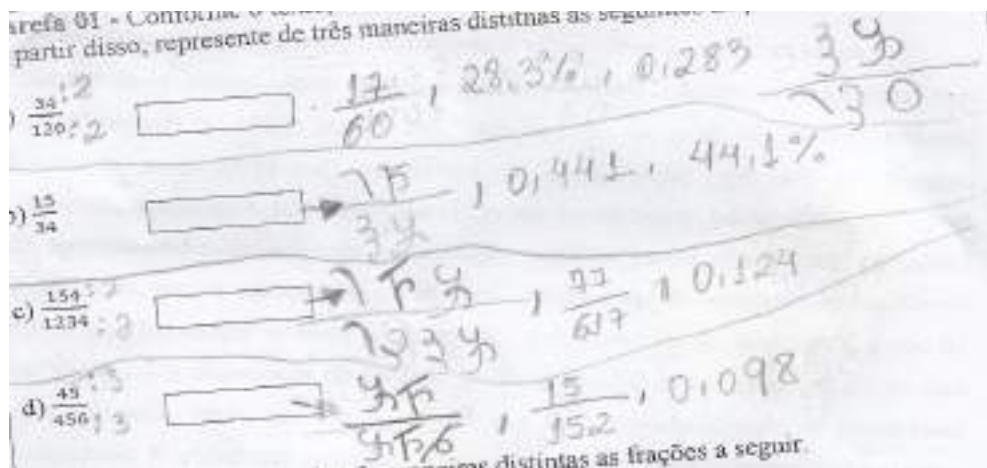 arefa 01 - Conforme o
partir disso, represente de três maneiras distitnas as seguintes
) 34/120 :2 :2 17/60 , 28,3% , 0,283 34/120
b) 15/34 15/34 , 0,441 , 44,1%
c) 154/1234 :2 :2 154/1234 , 77/617 , 0,124
d) 45/456 :3 :3 45/456 , 15/152 , 0,098
maneiras distintas as frações a seguir.